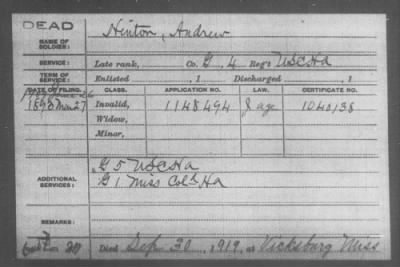 DEAD
NAME OF SOLDIER: Hinton, Andrew
SERVICE: Late rank, Co. G, 4 Reg't USCHa
TERM OF SERVICE: Enlisted , 1 Discharged , 1
DATE OF FILING. CLASS. APPLICATION NO. LAW. CERTIFICATE NO.
1893 Mar 27 Invalid, 1148494 J age 1040138
Widow,
Minor,
ADDITIONAL SERVICES: G 5 USCHa
G 1 Miss Cold Ha
REMARKS:
Died Sep 30, 1919, at Vicksburg Miss